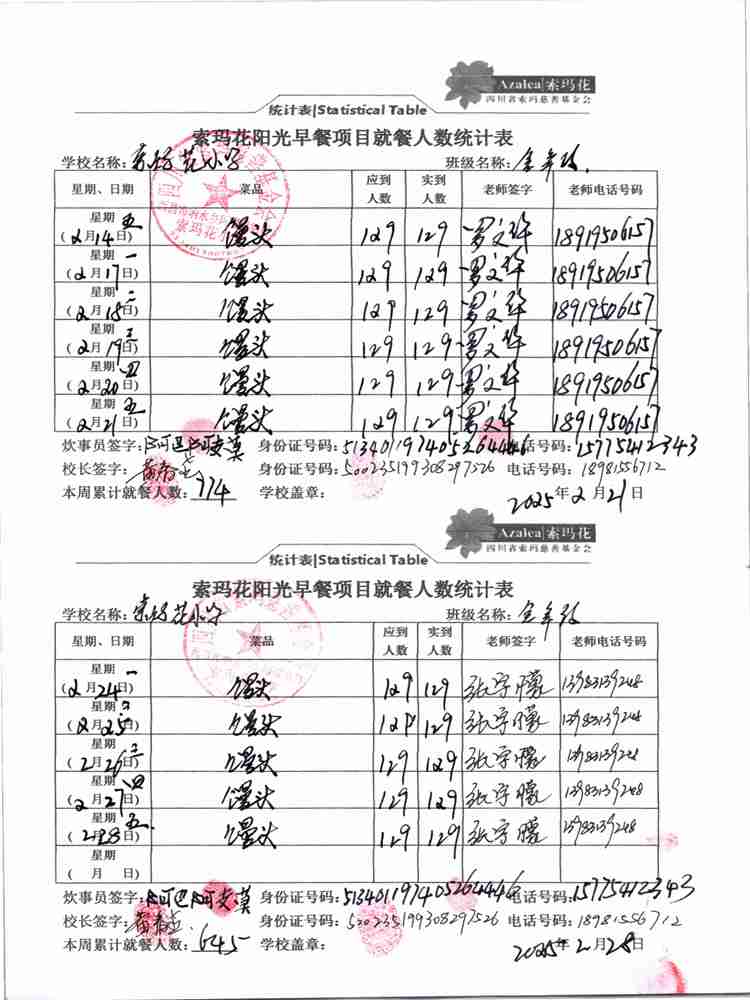 Azalea|索玛花
四川省索玛慈善基金会
统计表|Statistical Table
索玛花阳光早餐项目就餐人数统计表
学校名称:索玛花小学 班级名称:全年级
星期、日期 菜品 应到人数 实到人数 老师签字 老师电话号码
星期五 (2月14日) 馒头 129 129 罗文华 18919506157
星期一 (2月17日) 馒头 129 129 罗文华 18919506157
星期二 (2月18日) 馒头 129 129 罗文华 18919506157
星期三 (2月19日) 馒头 129 129 罗文华 18919506157
星期四 (2月20日) 馒头 129 129 罗文华 18919506157
星期五 (2月21日) 馒头 129 129 罗文华 18919506157
炊事员签字: 身份证号码:513401197405264446 电话号码:15775412343
校长签字: 身份证号码:500235199308297526 电话号码:18981556712
本周累计就餐人数:774 学校盖章:
2025年2月21日
Azalea|索玛花
四川省索玛慈善基金会
统计表|Statistical Table
索玛花阳光早餐项目就餐人数统计表
学校名称:索玛花小学 班级名称:全年级
星期、日期 菜品 应到人数 实到人数 老师签字 老师电话号码
星期一 (2月24日) 馒头 129 129 张宇朦 13983139248
星期二 (2月25日) 馒头 129 129 张宇朦
星期三 (2月26日) 馒头 129 129 张宇朦
星期四 (2月27日) 馒头 129 129 张宇朦 13983139248
星期五 (2月28日) 馒头 129 129 张宇朦 13983139248
星期
( 月 日)
炊事员签字: 身份证号码:513401197405264446 电话号码:15775412343
校长签字: 身份证号码:500235199308297526 电话号码:18981556712
本周累计就餐人数:645 学校盖章:
2025年2月28日